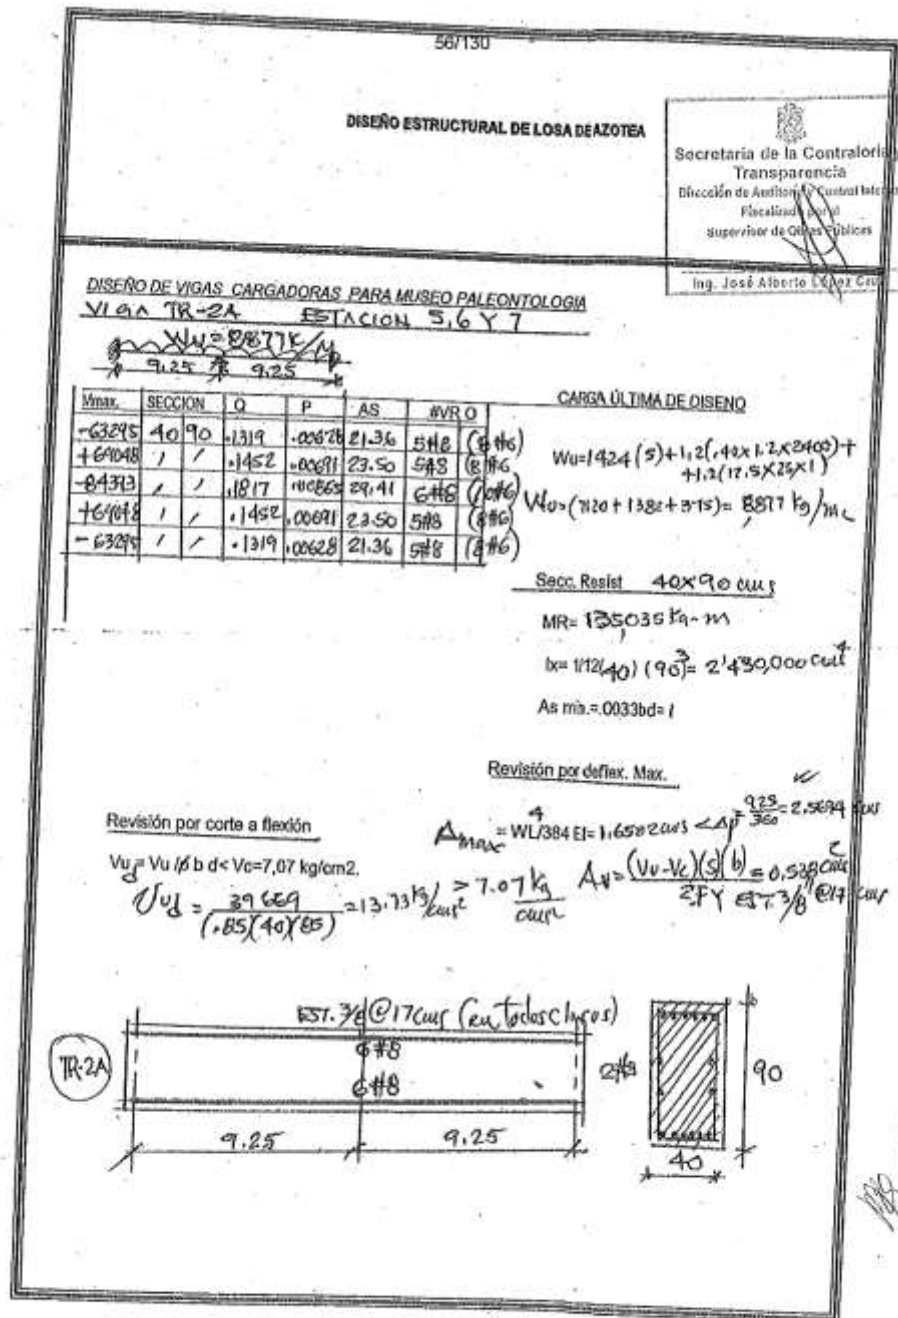 56/130
DISEÑO ESTRUCTURAL DE LOSA DE AZOTEA
Secretaria de la Contraloria
Transparencia
Dirección de Auditoría y Control
Fiscalizado por el
Supervisor de Obras Públicas
Ing. José Alberto López
DISEÑO DE VIGAS CARGADORAS PARA MUSEO PALEONTOLOGIA
VIGA TR-2A ESTACION 5,6 Y 7
Wu=8877K/M
9.25 9.25
Mmax. SECCION Q P AS #VR O
-63295 40 90 .1319 .00628 21.36 5#8 (8#6)
+69048 / / .1452 .00691 23.50 5#8 (8#6)
-84393 / / .1817 .00865 29.41 6#8 (10#6)
+69048 / / .1452 .00691 23.50 5#8 (8#6)
-63295 / / .1319 .00628 21.36 5#8 (8#6)
CARGA ÚLTIMA DE DISENO
Wu=1424(5)+1,2(.40x1.2x2400)+
+1.2(12.5x25x1)
Wu=(7120+1382+375)= 8877 kg/ml
Secc. Resist 40x90 cms
MR= 135,035 kg-m
Ix= 1/12(40)(90)³= 2'430,000 cms⁴
As min.=.0033bd=
Revisión por deflex. Max.
Δmax = WL⁴/384 EI= 1.6502cms < Δp= 925/360=2.5694 cms
Revisión por corte a flexión
Vu = Vu/ø b d< Vc=7,07 kg/cm2.
Vud = 39669/(.85)(40)(85) =13.73 kg/cms² > 7.07 kg/cms²
Av= (Vu-Vc)(S)(b)/2FY = 0.538 cms²
EST. 3/8 @17 cms
EST. 3/8 @17cms (en todos claros)
TR-2A
6#8
6#8
9.25 9.25
90
40